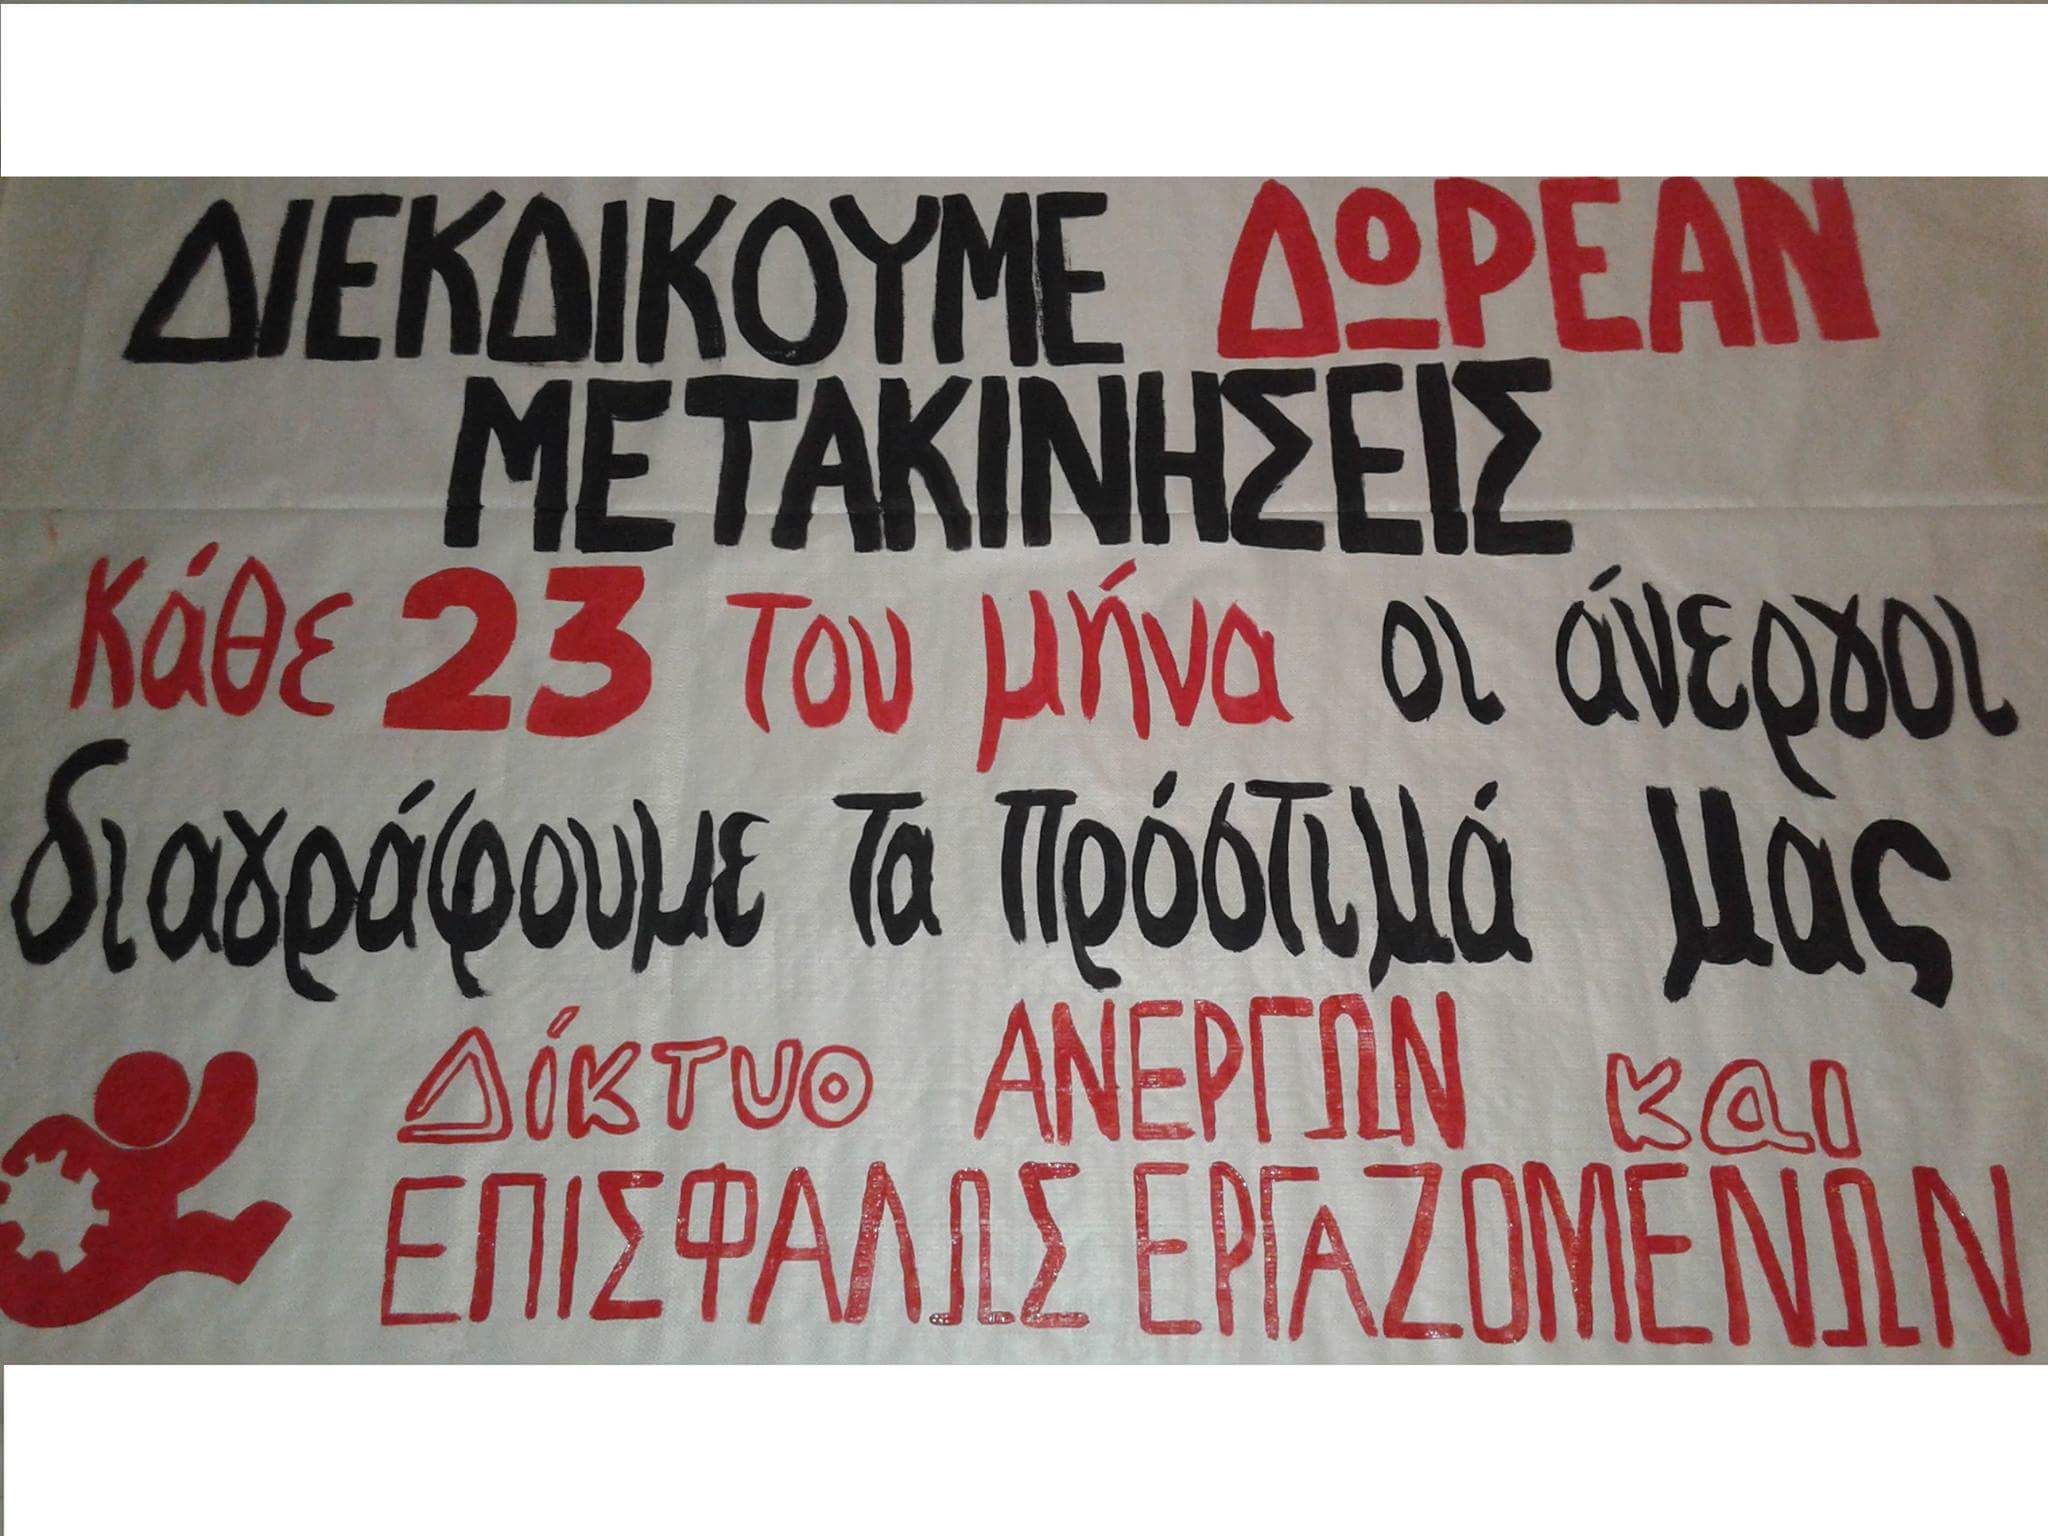 ΔΙΕΚΔΙΚΟΥΜΕ ΔΩΡΕΑΝ
ΜΕΤΑΚΙΝΗΣΕΙΣ
Κάθε 23 του μήνα οι άνεργοι
διαγράφουμε τα πρόστιμά μας
Δίκτυο ΑΝΕΡΓΩΝ και
ΕΠΙΣΦΑΛΩΣ ΕΡΓΑΖΟΜΕΝΩΝ